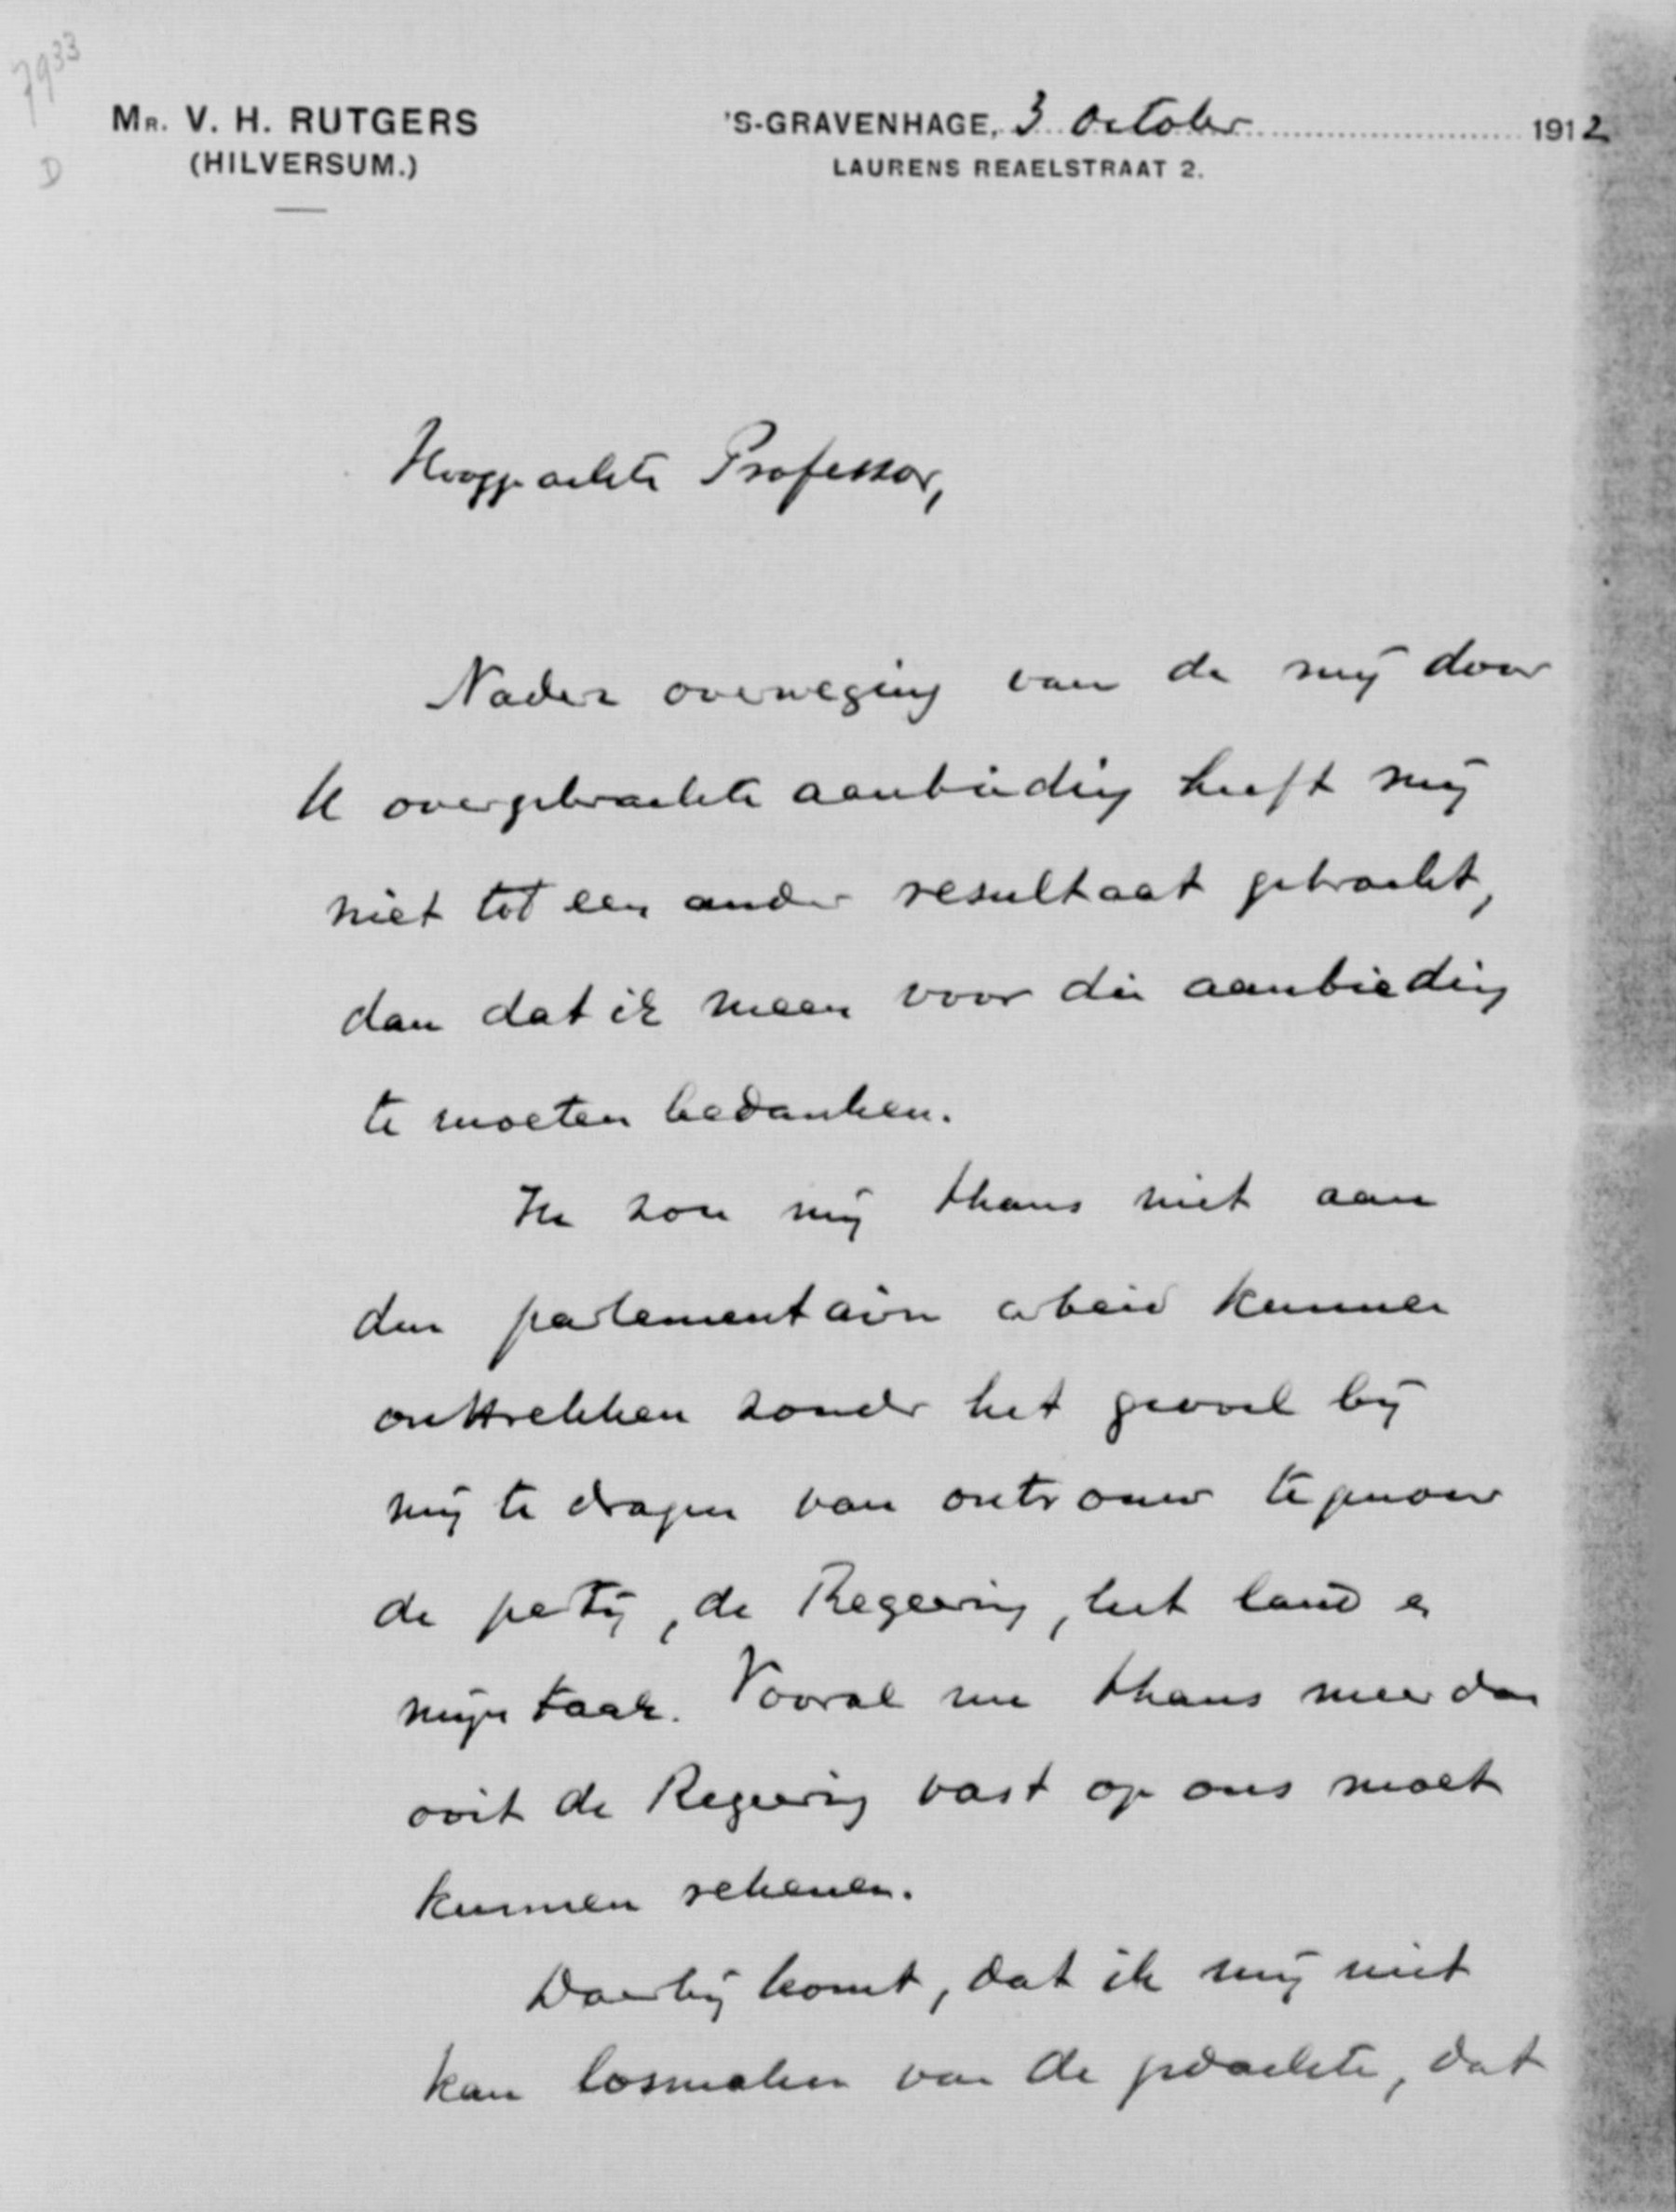 7933
D
MR. V. H. RUTGERS
(HILVERSUM.)
'S-GRAVENHAGE, 3 October 1912
LAURENS REAELSTRAAT 2.
Hooggeachte Professor,
Nadere overweging van de mij door
U overgebrachte aanbieding heeft mij
niet tot een ander resultaat gebracht,
dan dat ik meen voor die aanbieding
te moeten bedanken.
Ik zou mij thans niet aan
den parlementairen arbeid kunnen
onttrekken zonder het gevoel bij
mij te dragen van ontrouw tegenover
de partij, de Regeering, het land en
mijn taak. Vooral nu thans meer dan
ooit de Regeering vast op ons moet
kunnen rekenen.
Daarbij komt, dat ik mij niet
kan losmaken van de gedachte, dat